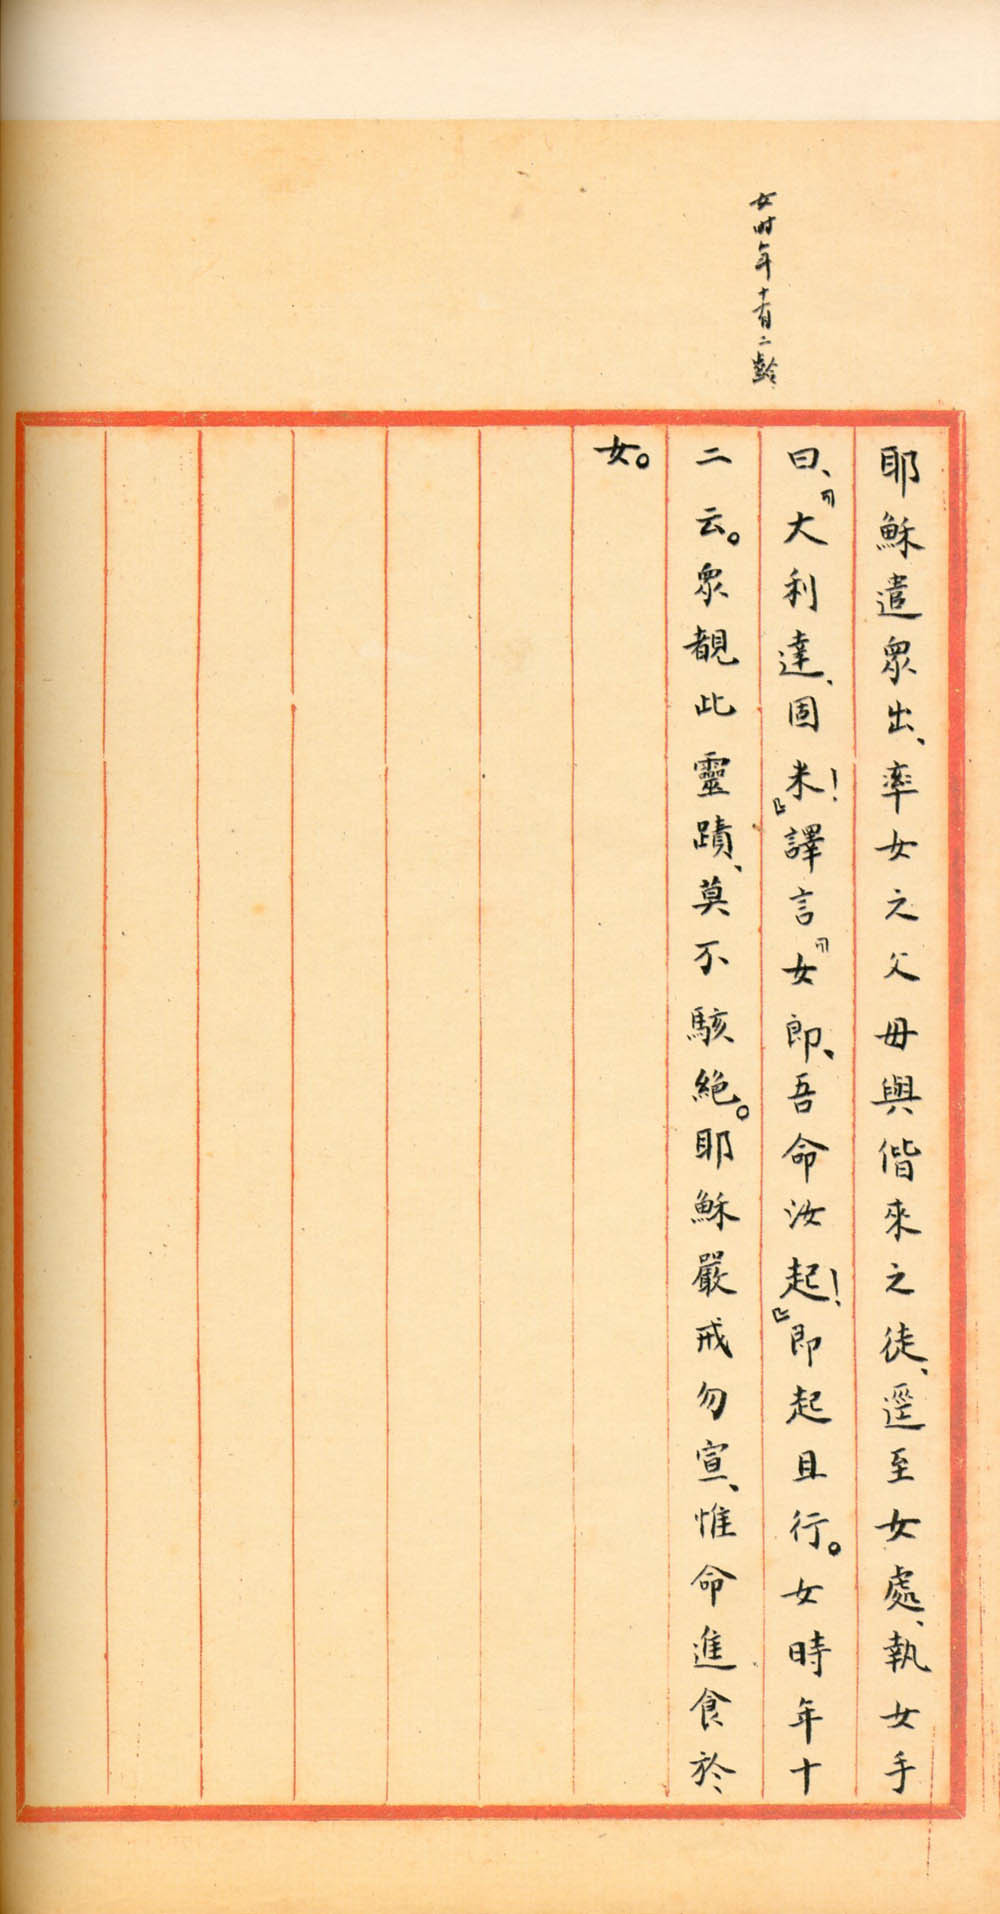 女时年十有二齡
耶穌遣眾出、率女之父母與偕來之徒、逕至女處、執女手
曰、『大利達、固米!』譯言『女郎、吾命汝起!』即起且行。女時年十
二云。眾覩此靈蹟、莫不駭絕。耶穌嚴戒勿宣、惟命進食於
女。